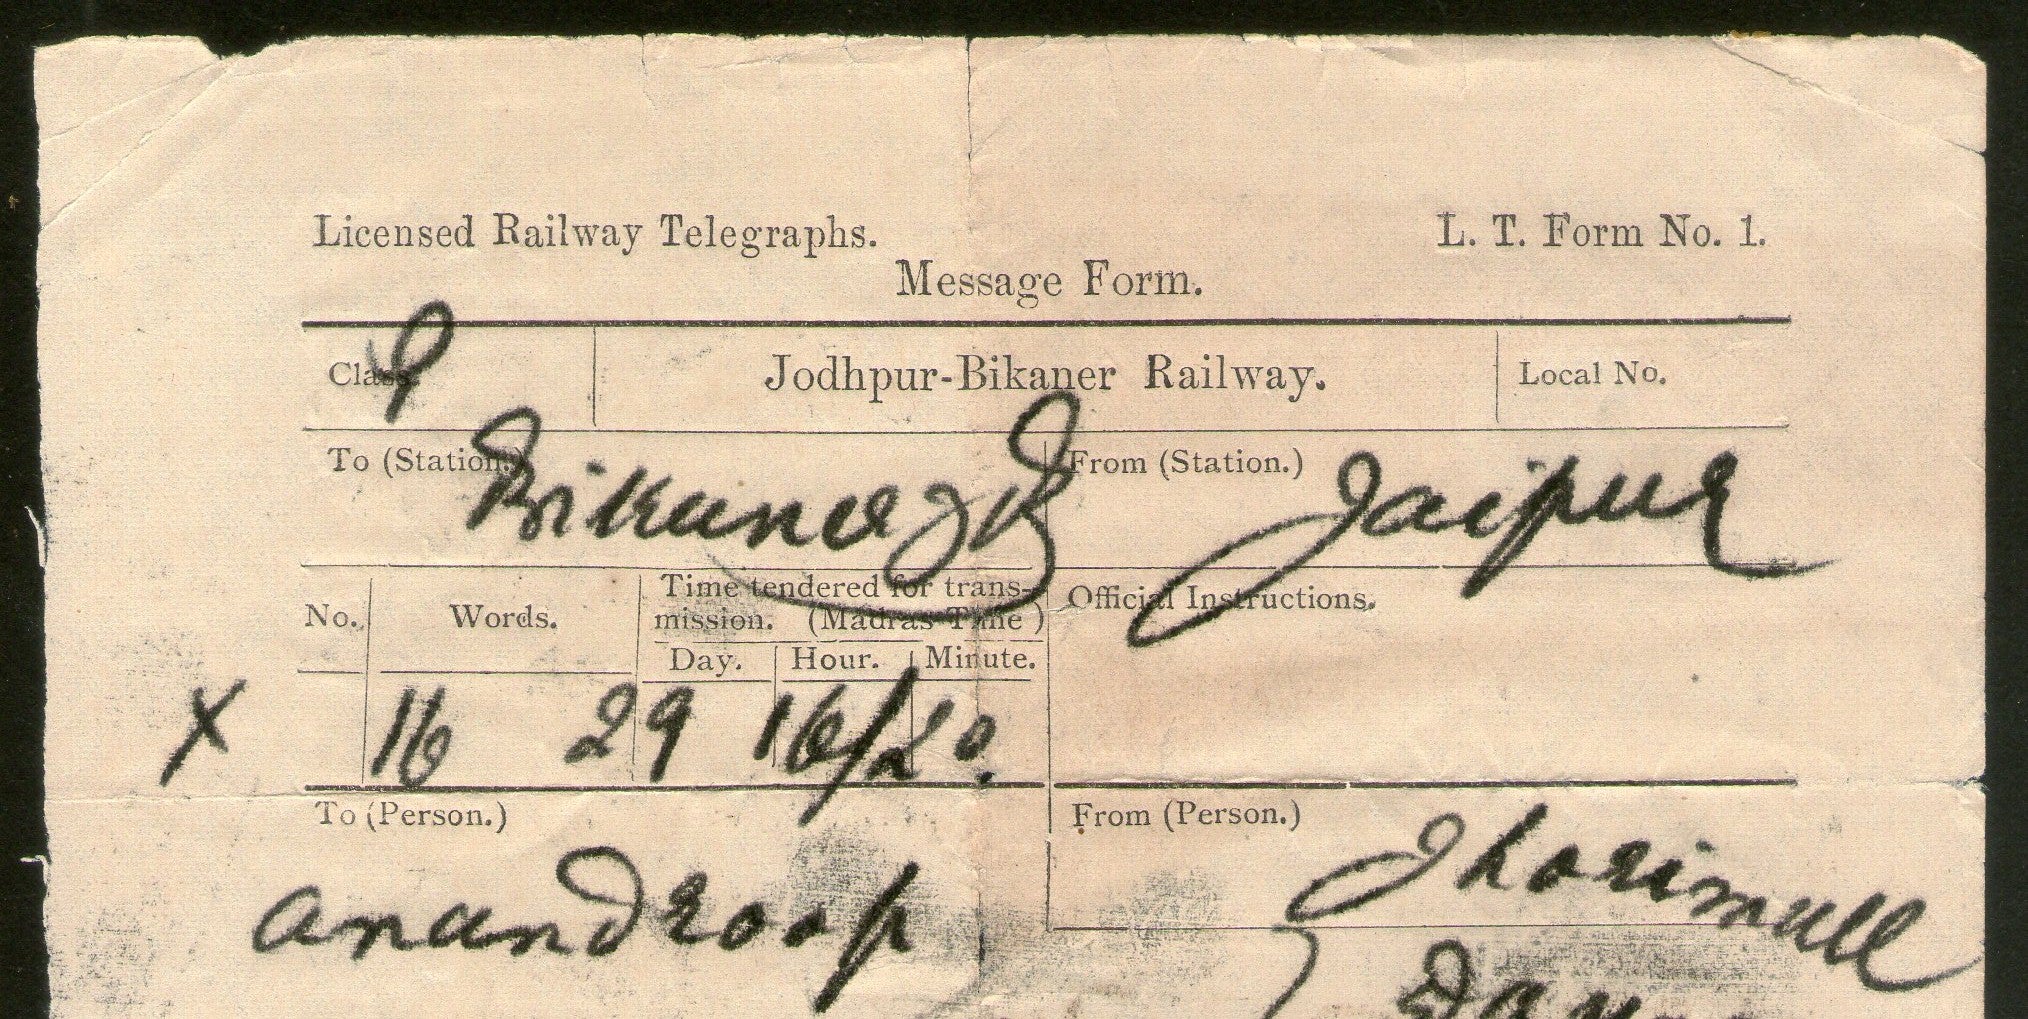 Licensed Railway Telegraphs. L. T. Form No. 1.
Message Form.
Class. Jodhpur-Bikaner Railway. Local No.
To (Station.) Bikaner From (Station.) Jaipur
No. Words. Time tendered for trans-
mission. (Madras Time) Official Instructions.
Day. Hour. Minute.
X 16 29 16/20.
To (Person.) From (Person.)
anandroop Jhorimull